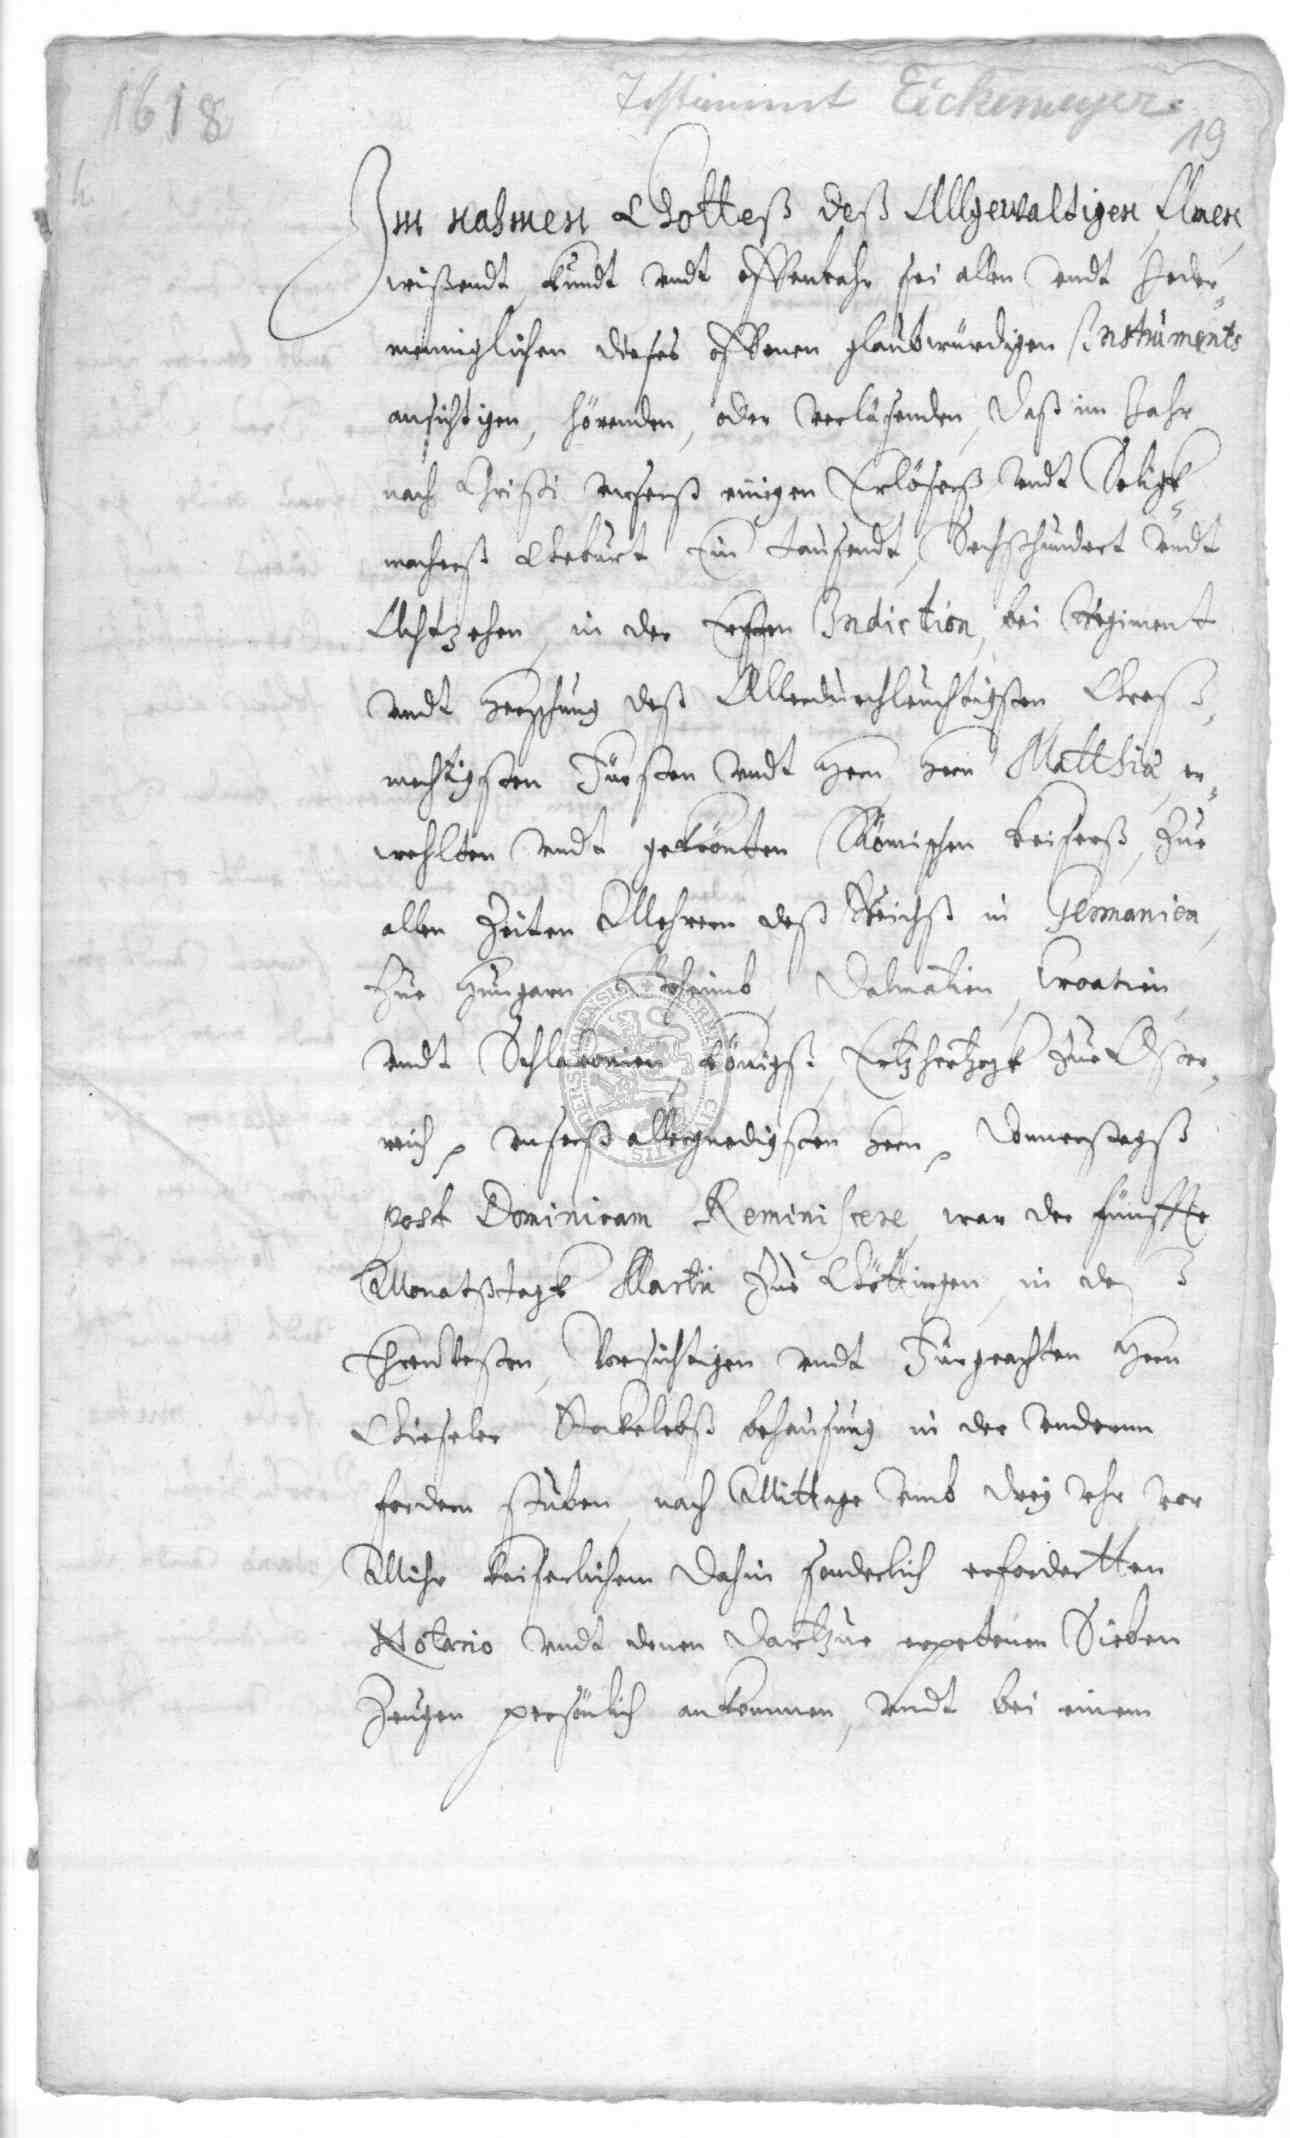 1618
Testament Eickemeyer.
19
Im nahmen Gotteß deß Allgewaltigen, Amen
wißendt, kundt undt offenbahr sei allen undt Jeder-
menniglichen dieses offenen glaubwürdigen Instruments
ansichtigen, hörenden, oder verläsenden, daß im Jahr
nach Christi unsers einigen Erlösers undt Seligk-
machers Geburt Ein tausendt, Sechshundert undt
Achtzehen, in der Ersten Indiction, bei Regiment
undt Herschung deß Allerdurchleuchtigsten, Groß-
mechtigsten Fürsten undt Hern, Hern Matthiæ, er-
wehlten undt gekrönten Römischen Keisers, Zue
allen Zeiten Mehrern deß Reichs in Germanien,
Zue Hungarn, Beheimb, Dalmatien, Croatien,
undt Schlavonien, Königs, Ertzhertzogk Zue Öster-
reich, unsers allergnedigsten Hern, Donnerstags
post Dominicam Reminiscere, war der fünffte
Monatßtagk Martii Zue Göttingen, in deß
Ehrenvesten, Vorsichtigen undt Fürgeachten Hern
Giseler behausung in der underen
fordern stuben, nach Mittage umb drey uhr, vor
Mihr Keiserlichem dahin sonderlich erfordertten
Notario undt denen dartzue erpetenen Sieben
Zeugen persönlich ankommen, undt bei einem